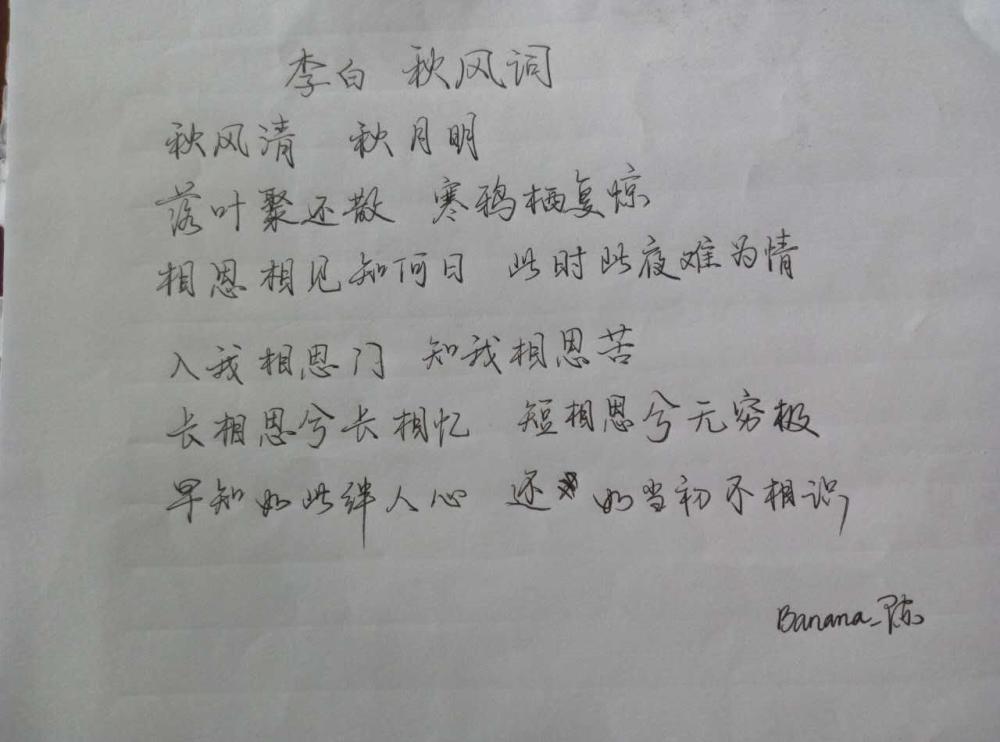 李白 秋风词
秋风清 秋月明
落叶聚还散 寒鸦栖复惊
相思相见知何日 此时此夜难为情
入我相思门 知我相思苦
长相思兮长相忆 短相思兮无穷极
早知如此绊人心 还如当初不相识
Banana_陈